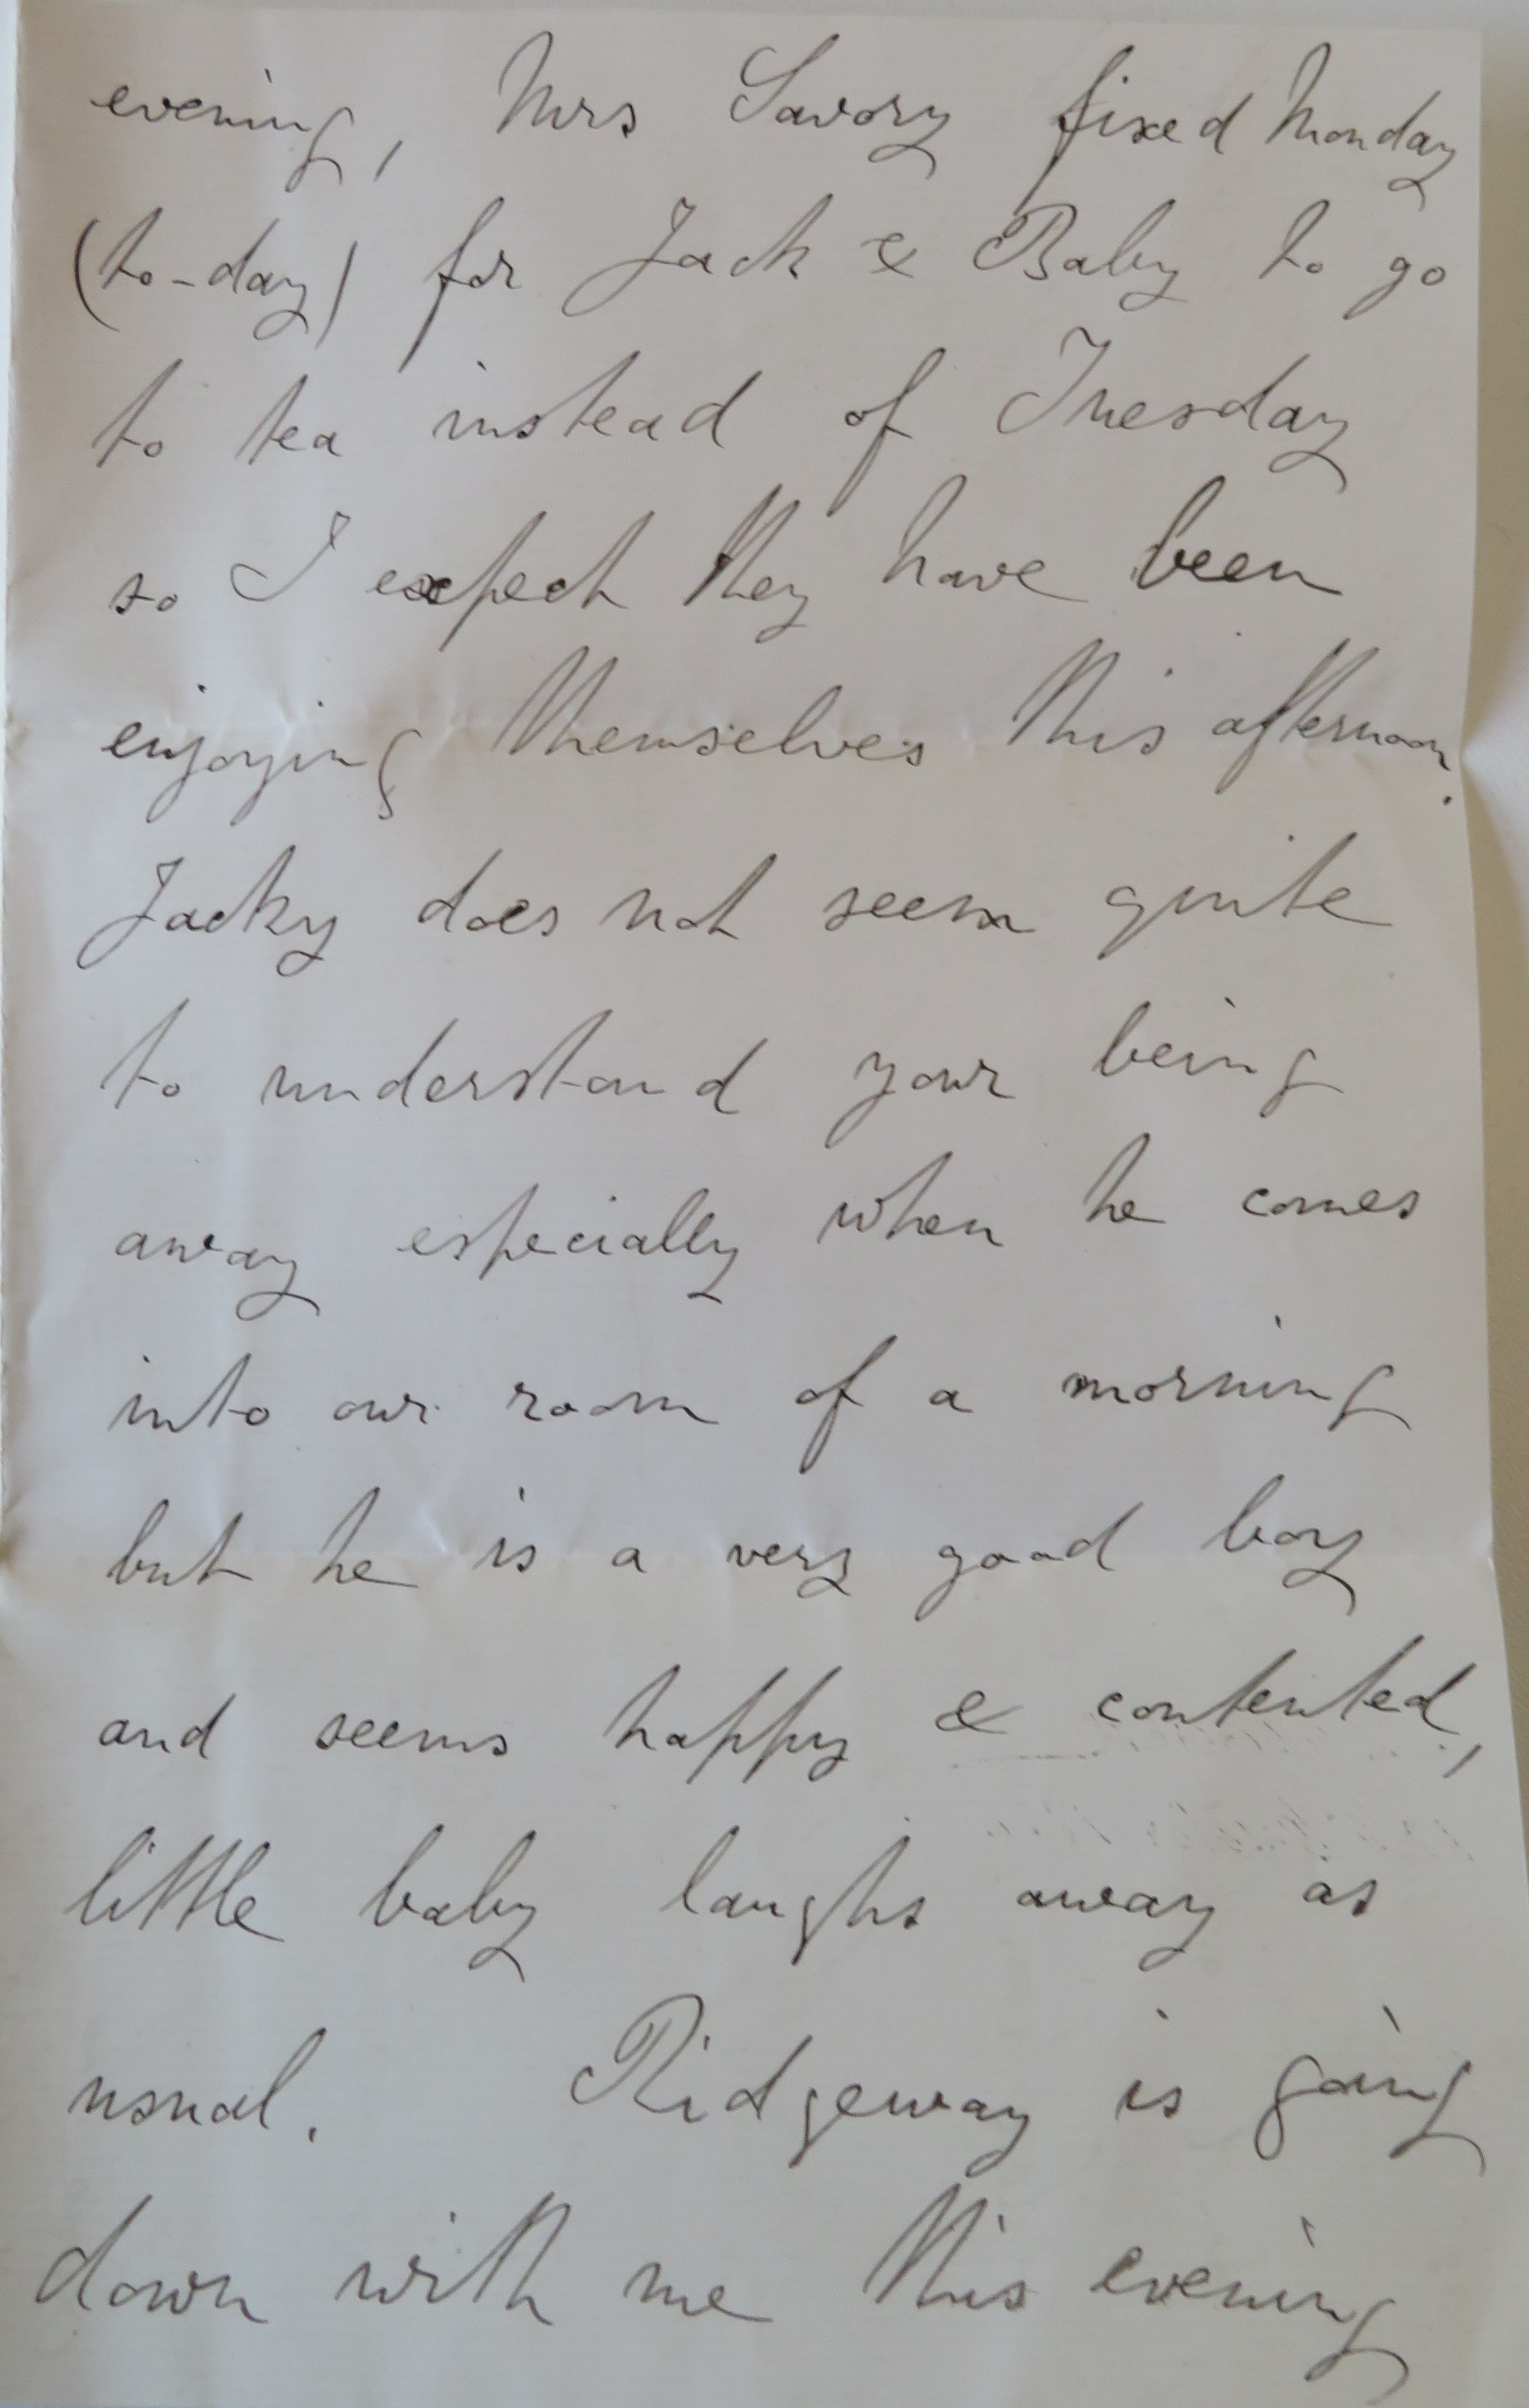 evening, Mrs Savory fixed Monday
(to-day) for Jack & Baby to go
to tea instead of Tuesday
so I expect they have been
enjoying themselves this afternoon.
Jacky does not seem quite
to understand your being
away especially when he comes
into our room of a morning
but he is a very good boy
and seems happy & contented,
little baby laughs away as
usual. Ridgeway is going
down with me this evening